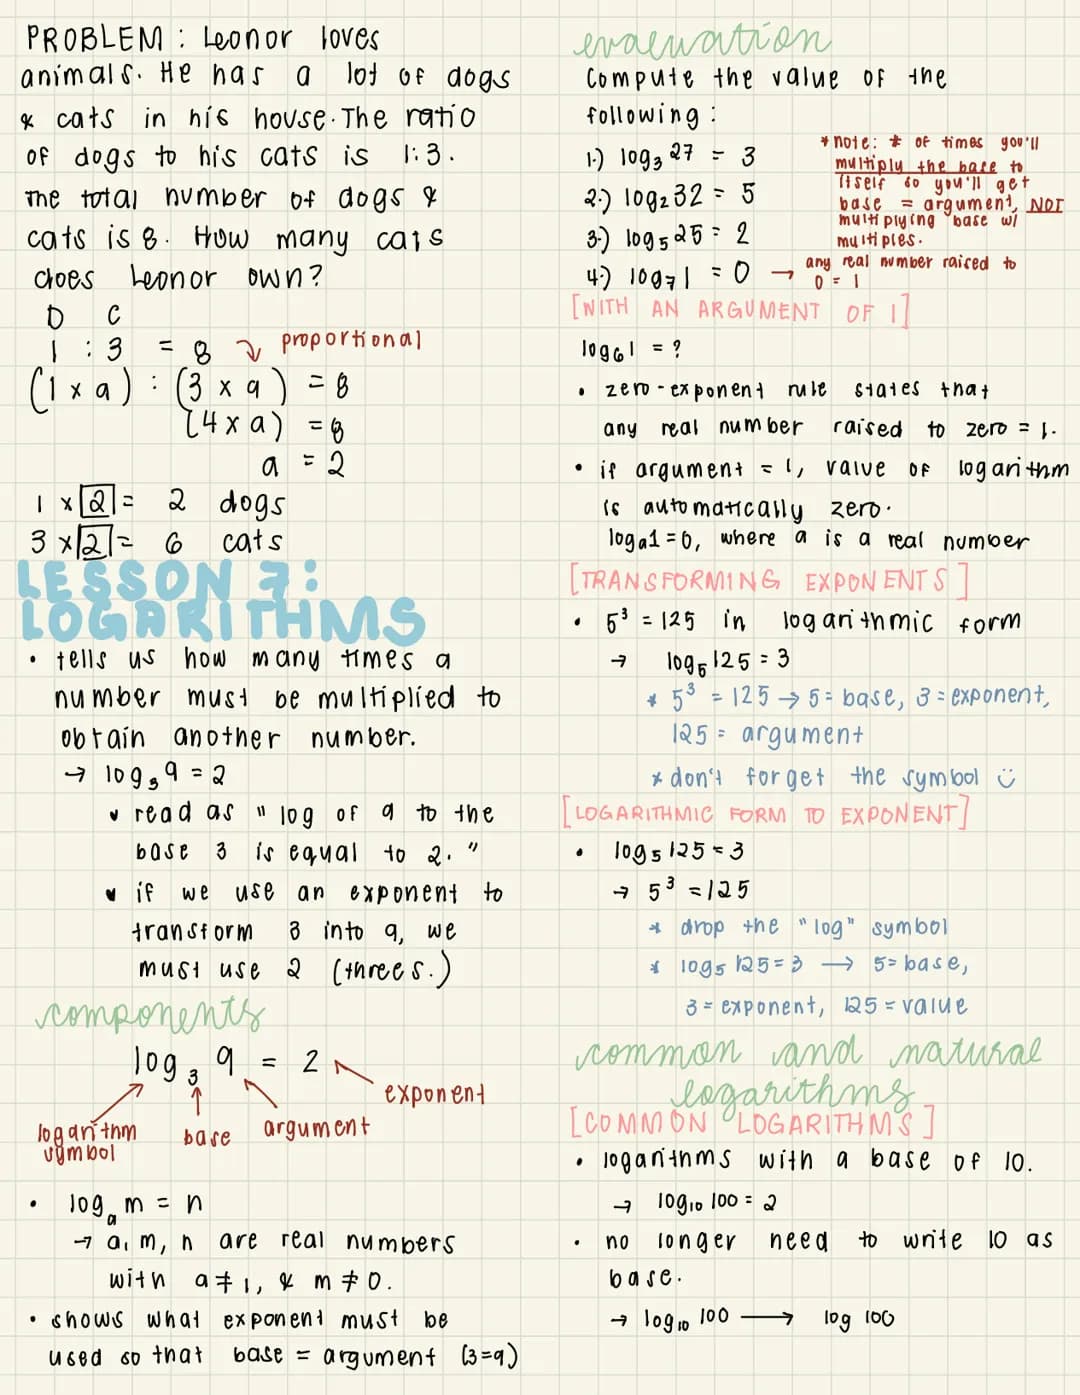 PROBLEM : Leonor loves
animals. He has a lot of dogs
& cats in his house. The ratio
of dogs to his cats is 1:3.
The total number of dogs &
cats is 8. How many cats
does Leonor own?
D C
1 : 3 = 8 proportional
(1 x a) : (3 x a) = 8
(4 x a) = 8
a = 2
1 x 2 = 2 dogs
3 x 2 = 6 cats
LESSON 7:
LOGARITHMS
• tells us how many times a
number must be multiplied to
obtain another number.
→ log₃9 = 2
read as "log of 9 to the
base 3 is equal to 2."
if we use an exponent to
transform 3 into 9, we
must use 2 (threes.)
components
log₃ 9 = 2
exponent
logarithm
symbol
base
argument
• logₐ m = n
→ a, m, n are real numbers
with a ≠ 1, & m ≠ 0.
• shows what exponent must be
used so that base = argument (3=9)
evaluation
Compute the value of the
following :
1.) log₃ 27 = 3
2.) log₂ 32 = 5
3.) log₅ 25 = 2
4.) log₇ 1 = 0 → any real number raised to
0 = 1
*note: # of times you'll
multiply the base to
itself so you'll get
base = argument, NOT
multiplying base w/
multiples.
[WITH AN ARGUMENT OF 1]
log₆1 = ?
• zero-exponent rule states that
any real number raised to zero = 1.
• if argument = 1, value of logarithm
is automatically zero.
logₐ1=0, where a is a real number
[TRANSFORMING EXPONENTS]
• 5³ = 125 in logarithmic form
→ log₅ 125 = 3
* 5³ = 125 → 5 = base, 3 = exponent,
125 = argument
* don't forget the symbol ☺
[LOGARITHMIC FORM TO EXPONENT]
• log₅ 125 = 3
→ 5³ = 125
* drop the "log" symbol
* log₅ 125 = 3 → 5 = base,
3 = exponent, 125 = value
common and natural
logarithms
[COMMON LOGARITHMS]
• logarithms with a base of 10.
→ log₁₀ 100 = 2
• no longer need to write 10 as
base.
→ log₁₀ 100 → log 100